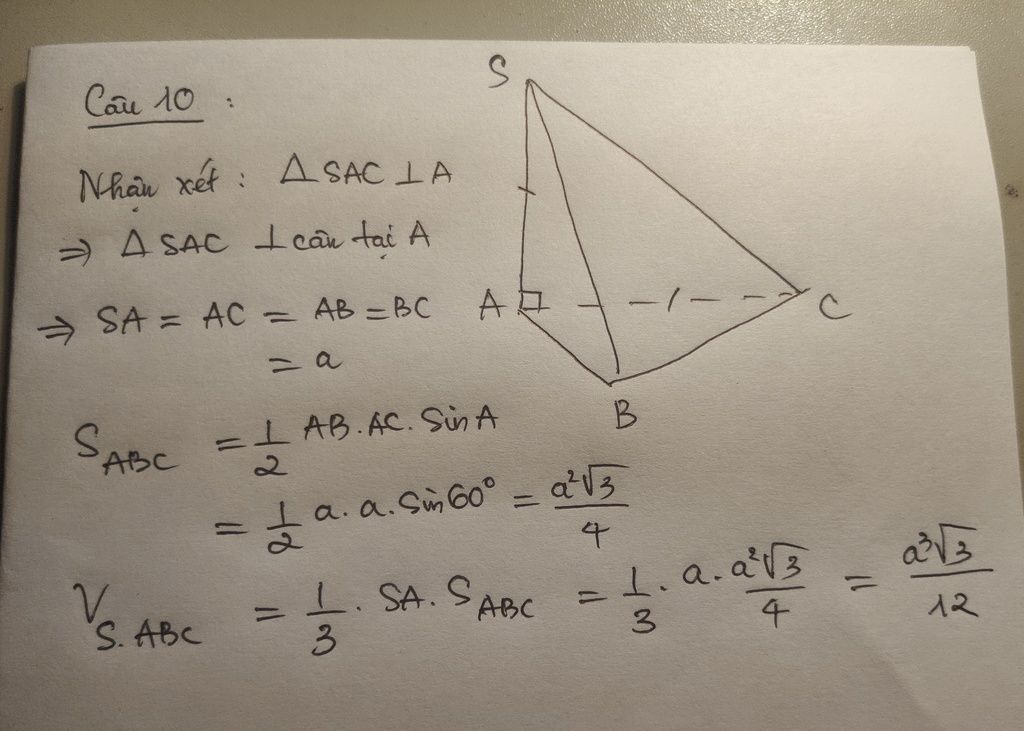 Câu 10 :
Nhận xét : Δ SAC ⊥ A
⇒ Δ SAC ⊥ cân tại A
⇒ SA = AC = AB = BC
= a
S_ABC = 1/2 AB. AC. Sin A
= 1/2 a. a. Sin 60° = a²√3/4
V_S.ABC = 1/3 . SA. S_ABC = 1/3 . a. a²√3/4 = a³√3/12
S
A
C
B